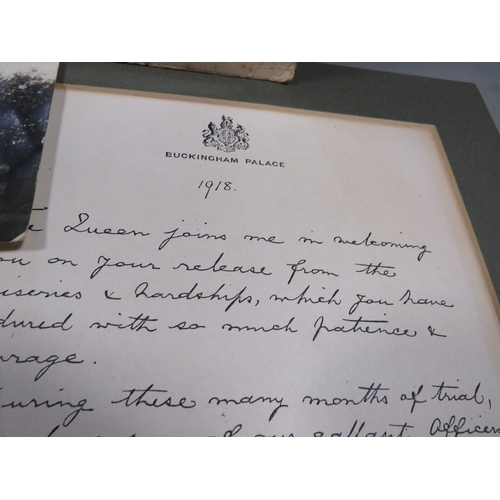 BUCKINGHAM PALACE
1918.
Queen joins me in welcoming
on your release from the
iseries & hardships, which you have
dured with so much patience &
urage.
uring these many months of trial,
of our gallant Officers